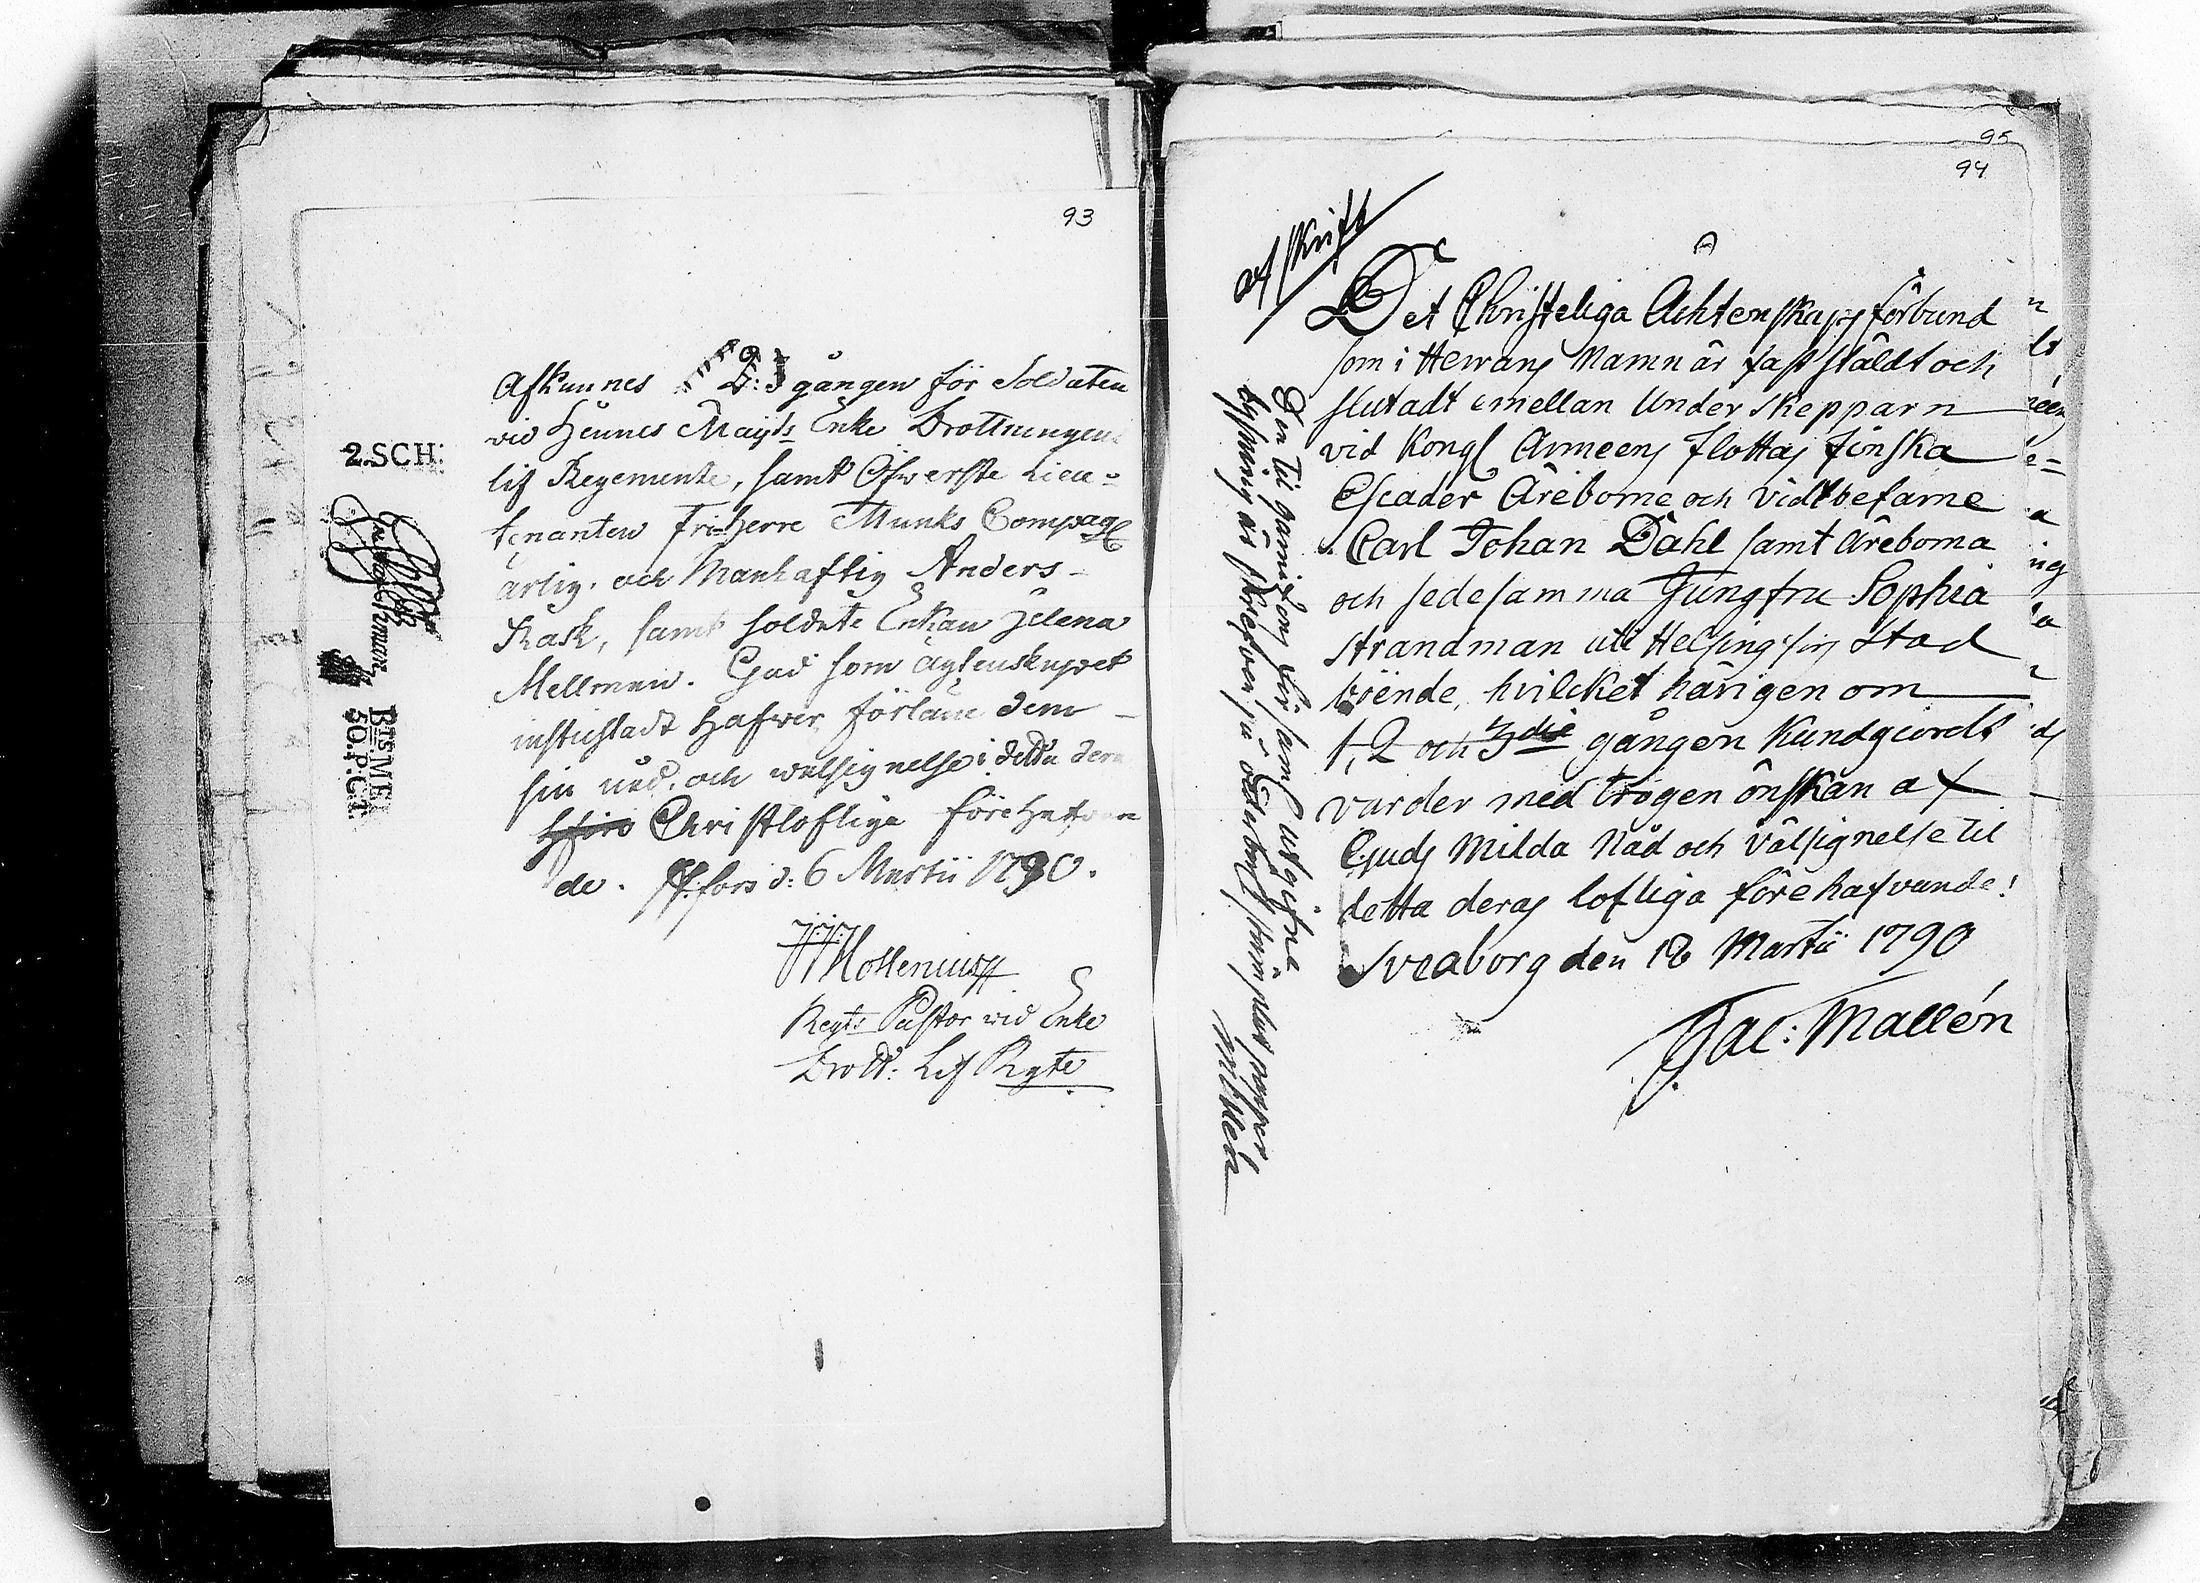 93
Afkunnes 2: 3 gången för Soldaten
vid Hennes Maijts Enke Drottningens
lif Regemente, samt Öfwerste Lieu-
tenanten Friherre Munks Compagl
ärlig. och Manhaftig Anders
Rask, samt soldate Enkan Helena
Mellman. Gud som ägtenskapet
instichtadt hafwer, förläne dem
sin nåd, och wälsignelse i detta dera
Christloflige förehafwan
de. H:fors d: 6 Martii 1790.
Regts Pastor wid Enke
Drott: Lif Rgte
2.SCH:
BTSME
50.P:CT.
95
94
afskrift
Det Christeliga Ächtenskaps förbund
som i Herrans Namn är fast stäldt och
slutadt emellan Under skepparn
vid Kongl Armeens flottas finska
Escader Äreborne och Vidtbefarne
Carl Johan Dahl samt äreborna
och sedesamma Jungfru Sophia
Strandman uti Helsingfors Stad
boende, hvilcket härigenom
1, 2 och 3die gången Kundgiordt
varder med trogen önskan af
Guds Milda Nåd och välsignelse til
detta deras lofliga förehafvande!
Sveaborg den 18 Martii 1790
Jac: Mallén
Den til garnizons församl utgifne
lyssning är skrefven på